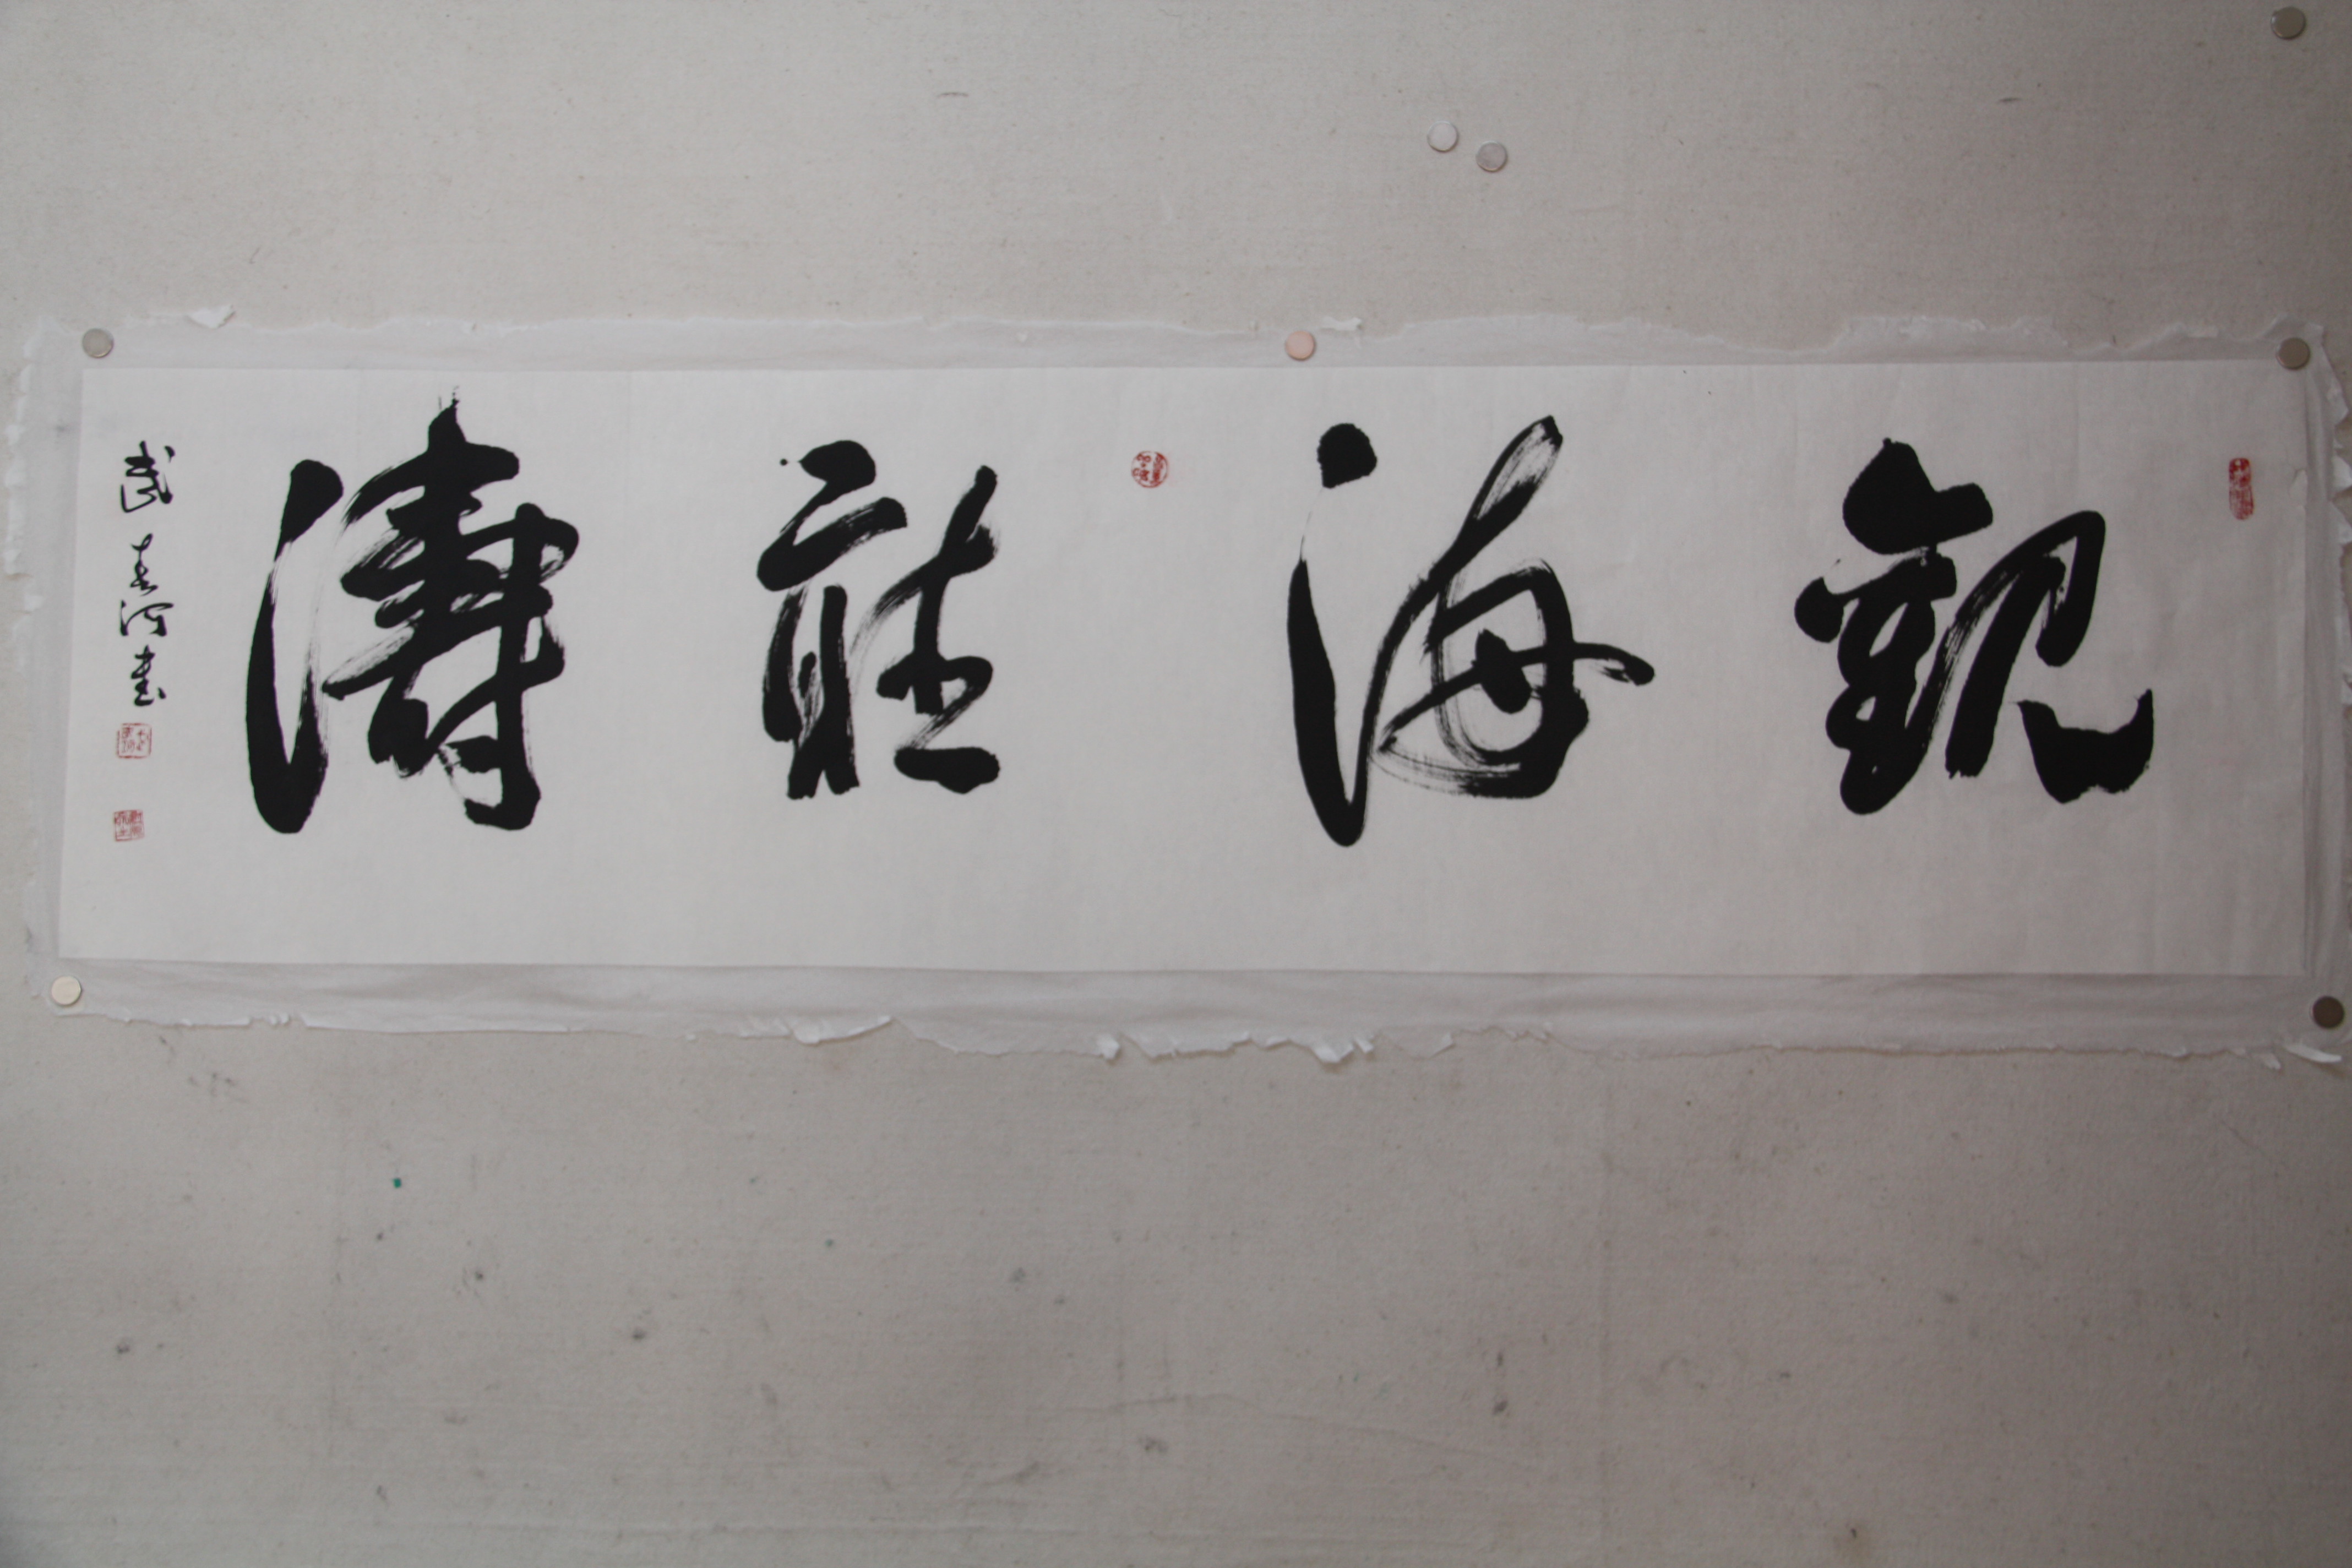 觀海聽濤
武春河書